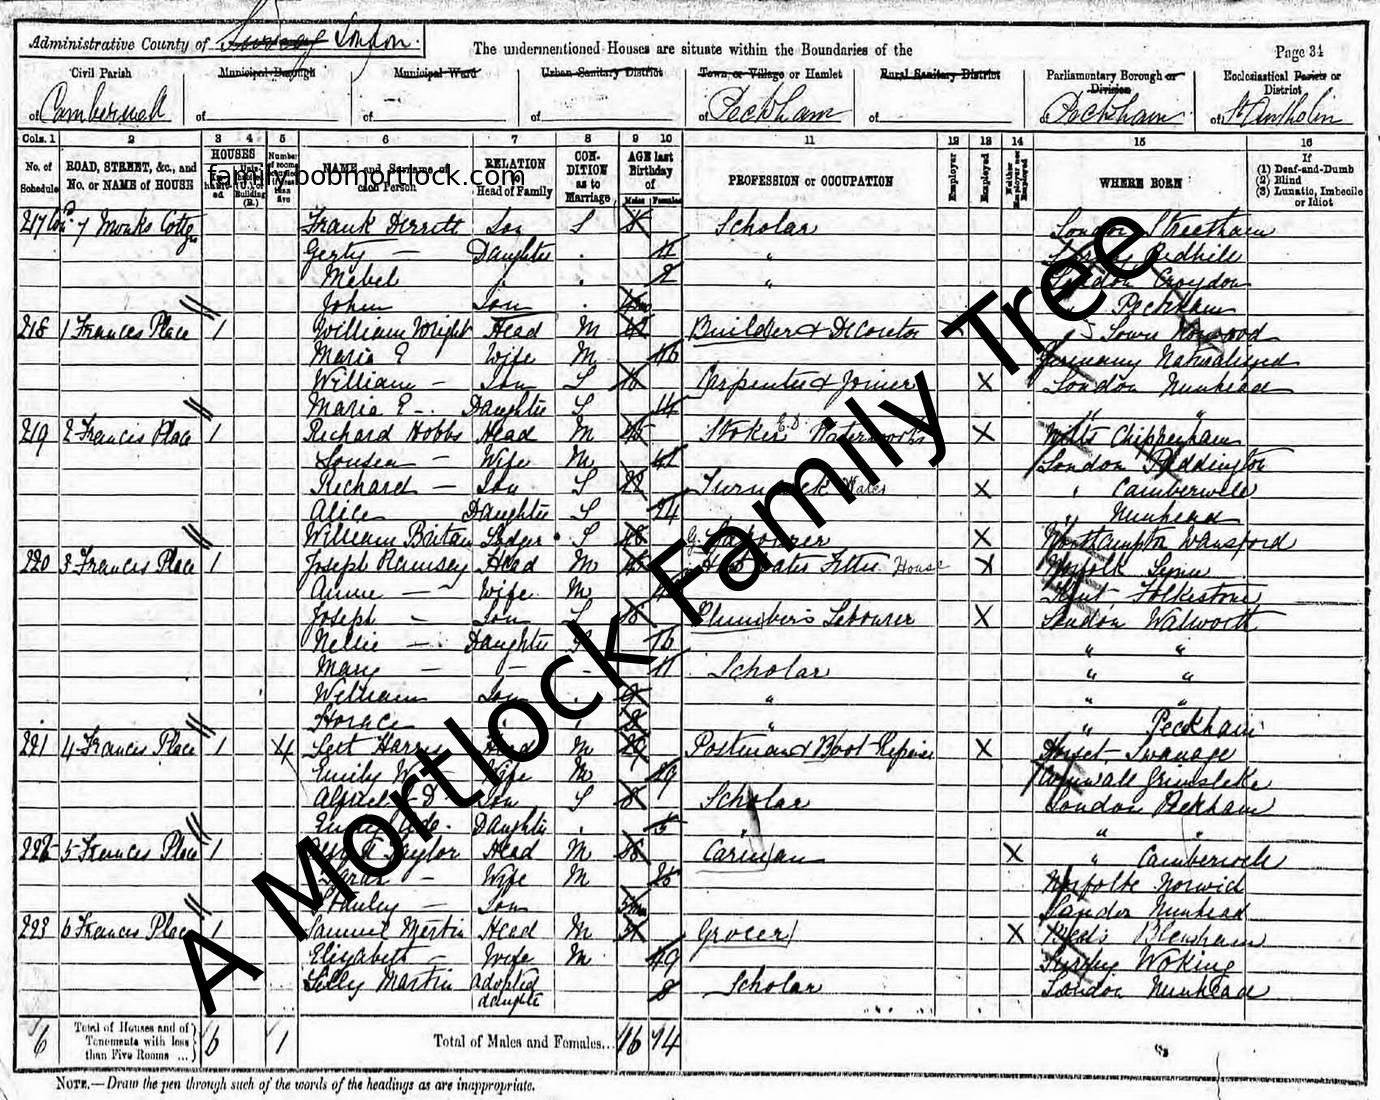 Administrative County of Surrey London.
The undermentioned Houses are situate within the Boundaries of the
Page 34
Civil Parish
Municipal Borough
Municipal Ward
Urban Sanitary District
Town or Village or Hamlet
Rural Sanitary District
Parliamentary Borough or Division
Ecclesiastical Parish or District
of Camberwell of of of of Peckham of of Peckham of
Cols. 1 2 3 4 5 6 7 8 9 10 11 12 13 14 15 16
No. of Schedule
ROAD, STREET, &c., and No. or NAME of HOUSE
HOUSES
NAME and Surname of each Person
RELATION to Head of Family
CONDITION as to Marriage
AGE last Birthday of
Males Females
PROFESSION or OCCUPATION
Employer
Employed
Neither Employer nor Employed
WHERE BORN
(1) Deaf-and-Dumb
(2) Blind
(3) Lunatic, Imbecile or Idiot
family.bobmortlock.com
217 7 Monks Cottgs Frank Derrett Son S Scholar London Streetham
Gerty — Daughter . " Surrey Redhill
Mabel " . 2 " London Croydon
John Son Peckham
218 1 Frances Place 1 William Wright Head M Builder & Decorator
Maria E Wife M 46 Germany Naturalised
William — Son S 16 Carpenter & Joiner X London Nunhead
Maria E — Daughter S 14 " "
219 2 Francis Place 1 Richard Hobbs Head M 45 Stoker Waterworks X Wilts Chippenham
Louisa — Wife M London Paddington
Richard — Son S 22 X " Camberwell
Alice Daughter S " Nunhead
William Britain Lodger S Labourer X Northampton Wansford
220 3 Frances Place 1 Joseph Ramsey Head M House X Norfolk Lynn
Annie — Wife M Kent Folkestone
Joseph — Son S 18 Plumber's Labourer X London Walworth
Nellie — Daughter S 16 " "
Mary — — - 11 Scholar " "
William Son . 9 " " "
Horace " " " Peckham
221 4 Frances Place 1 4 Harris Head M 29 Postman & Boot Repairer X Dorset Swanage
Emily W — Wife M 29 Cornwall
Alfred — D — Son S 8 Scholar London Peckham
Daughter . 5 " " "
222 5 Frances Place 1 Taylor Head M Carman X " Camberwell
Sarah — Wife M Norfolk Norwich
Stanley — Son London Nunhead
223 6 Frances Place 1 Samuel Martin Head M Grocer X
Elizabeth — Wife M 49 Surrey Woking
Lilly Martin adopted daughter 8 Scholar London Nunhead
6 Total of Houses and of Tenements with less than Five Rooms ... 6 1 Total of Males and Females... 16 14
NOTE.—Draw the pen through such of the words of the headings as are inappropriate.
A Mortlock Family Tree